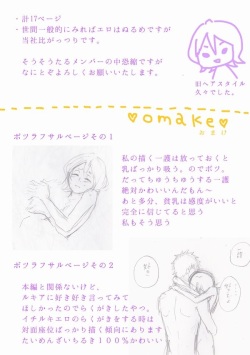 ・計17ページ
・世間一般的にみればエロはぬるめですが
当社比がっつりです。
そうそうたるメンバーの中恐縮ですが
なにとぞよろしくお願いいたします。
旧ヘアスタイル
久々でした。
♥omake♥
おまけ
ボツラフサルページその1
私の描く一護は放っておくと
乳ばっかり吸う。のでボツ。
だってちゅうちゅうする一護
絶対かわいいんだもん~
あと多分。貧乳は感度がいいと
完全に信じてると思う
私もそう思う
ボツラフサルページその2
本編と関係ないけど、
ルキアに好き好き言ってみて
ほしかったのでらくがきしたやつ。
イチルキエロのらくがきをする時は
対面座位ばっかり描く傾向にあります
たいめんざいちるき100%かわいい